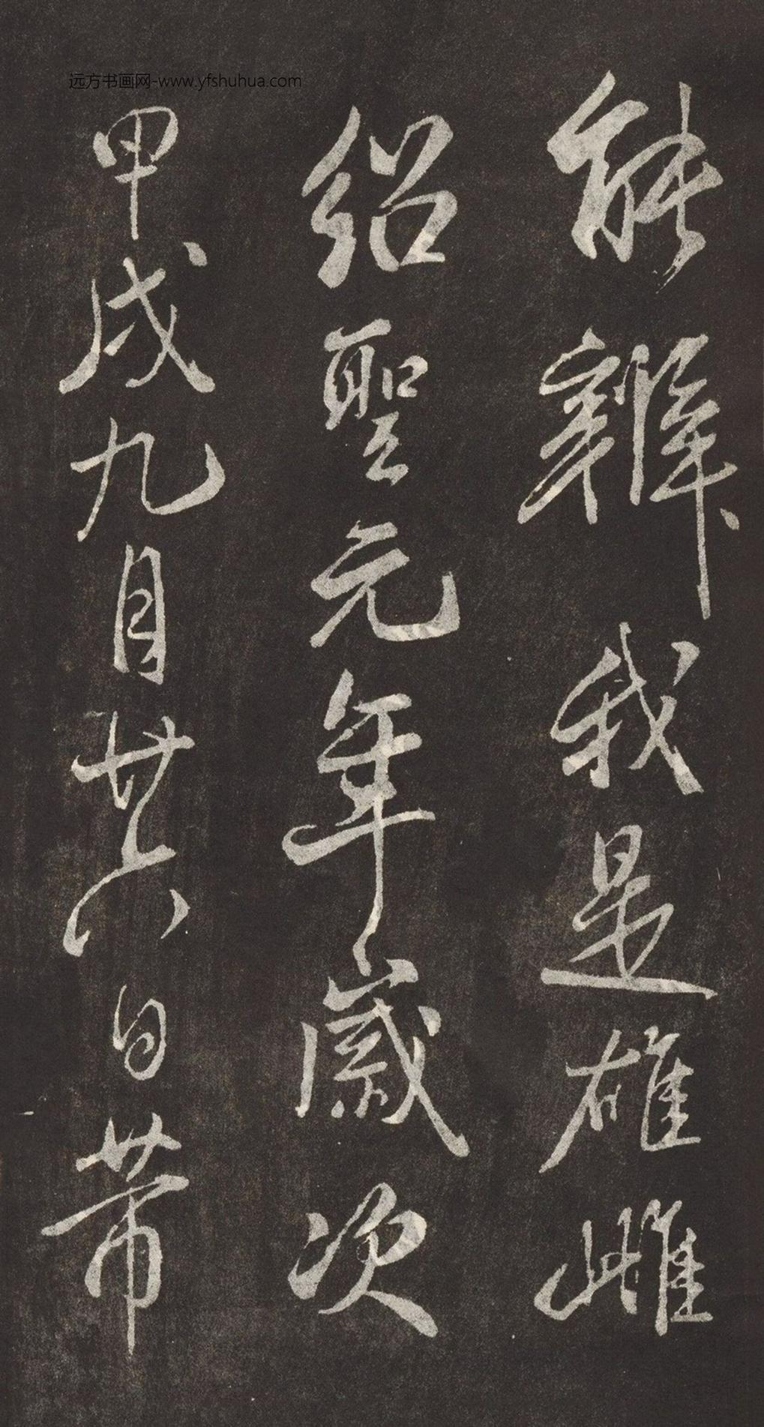 远方书画网-www.yfshuhua.com
能辨我是雄雌
紹聖元年歲次
甲戌九月廿六日帶